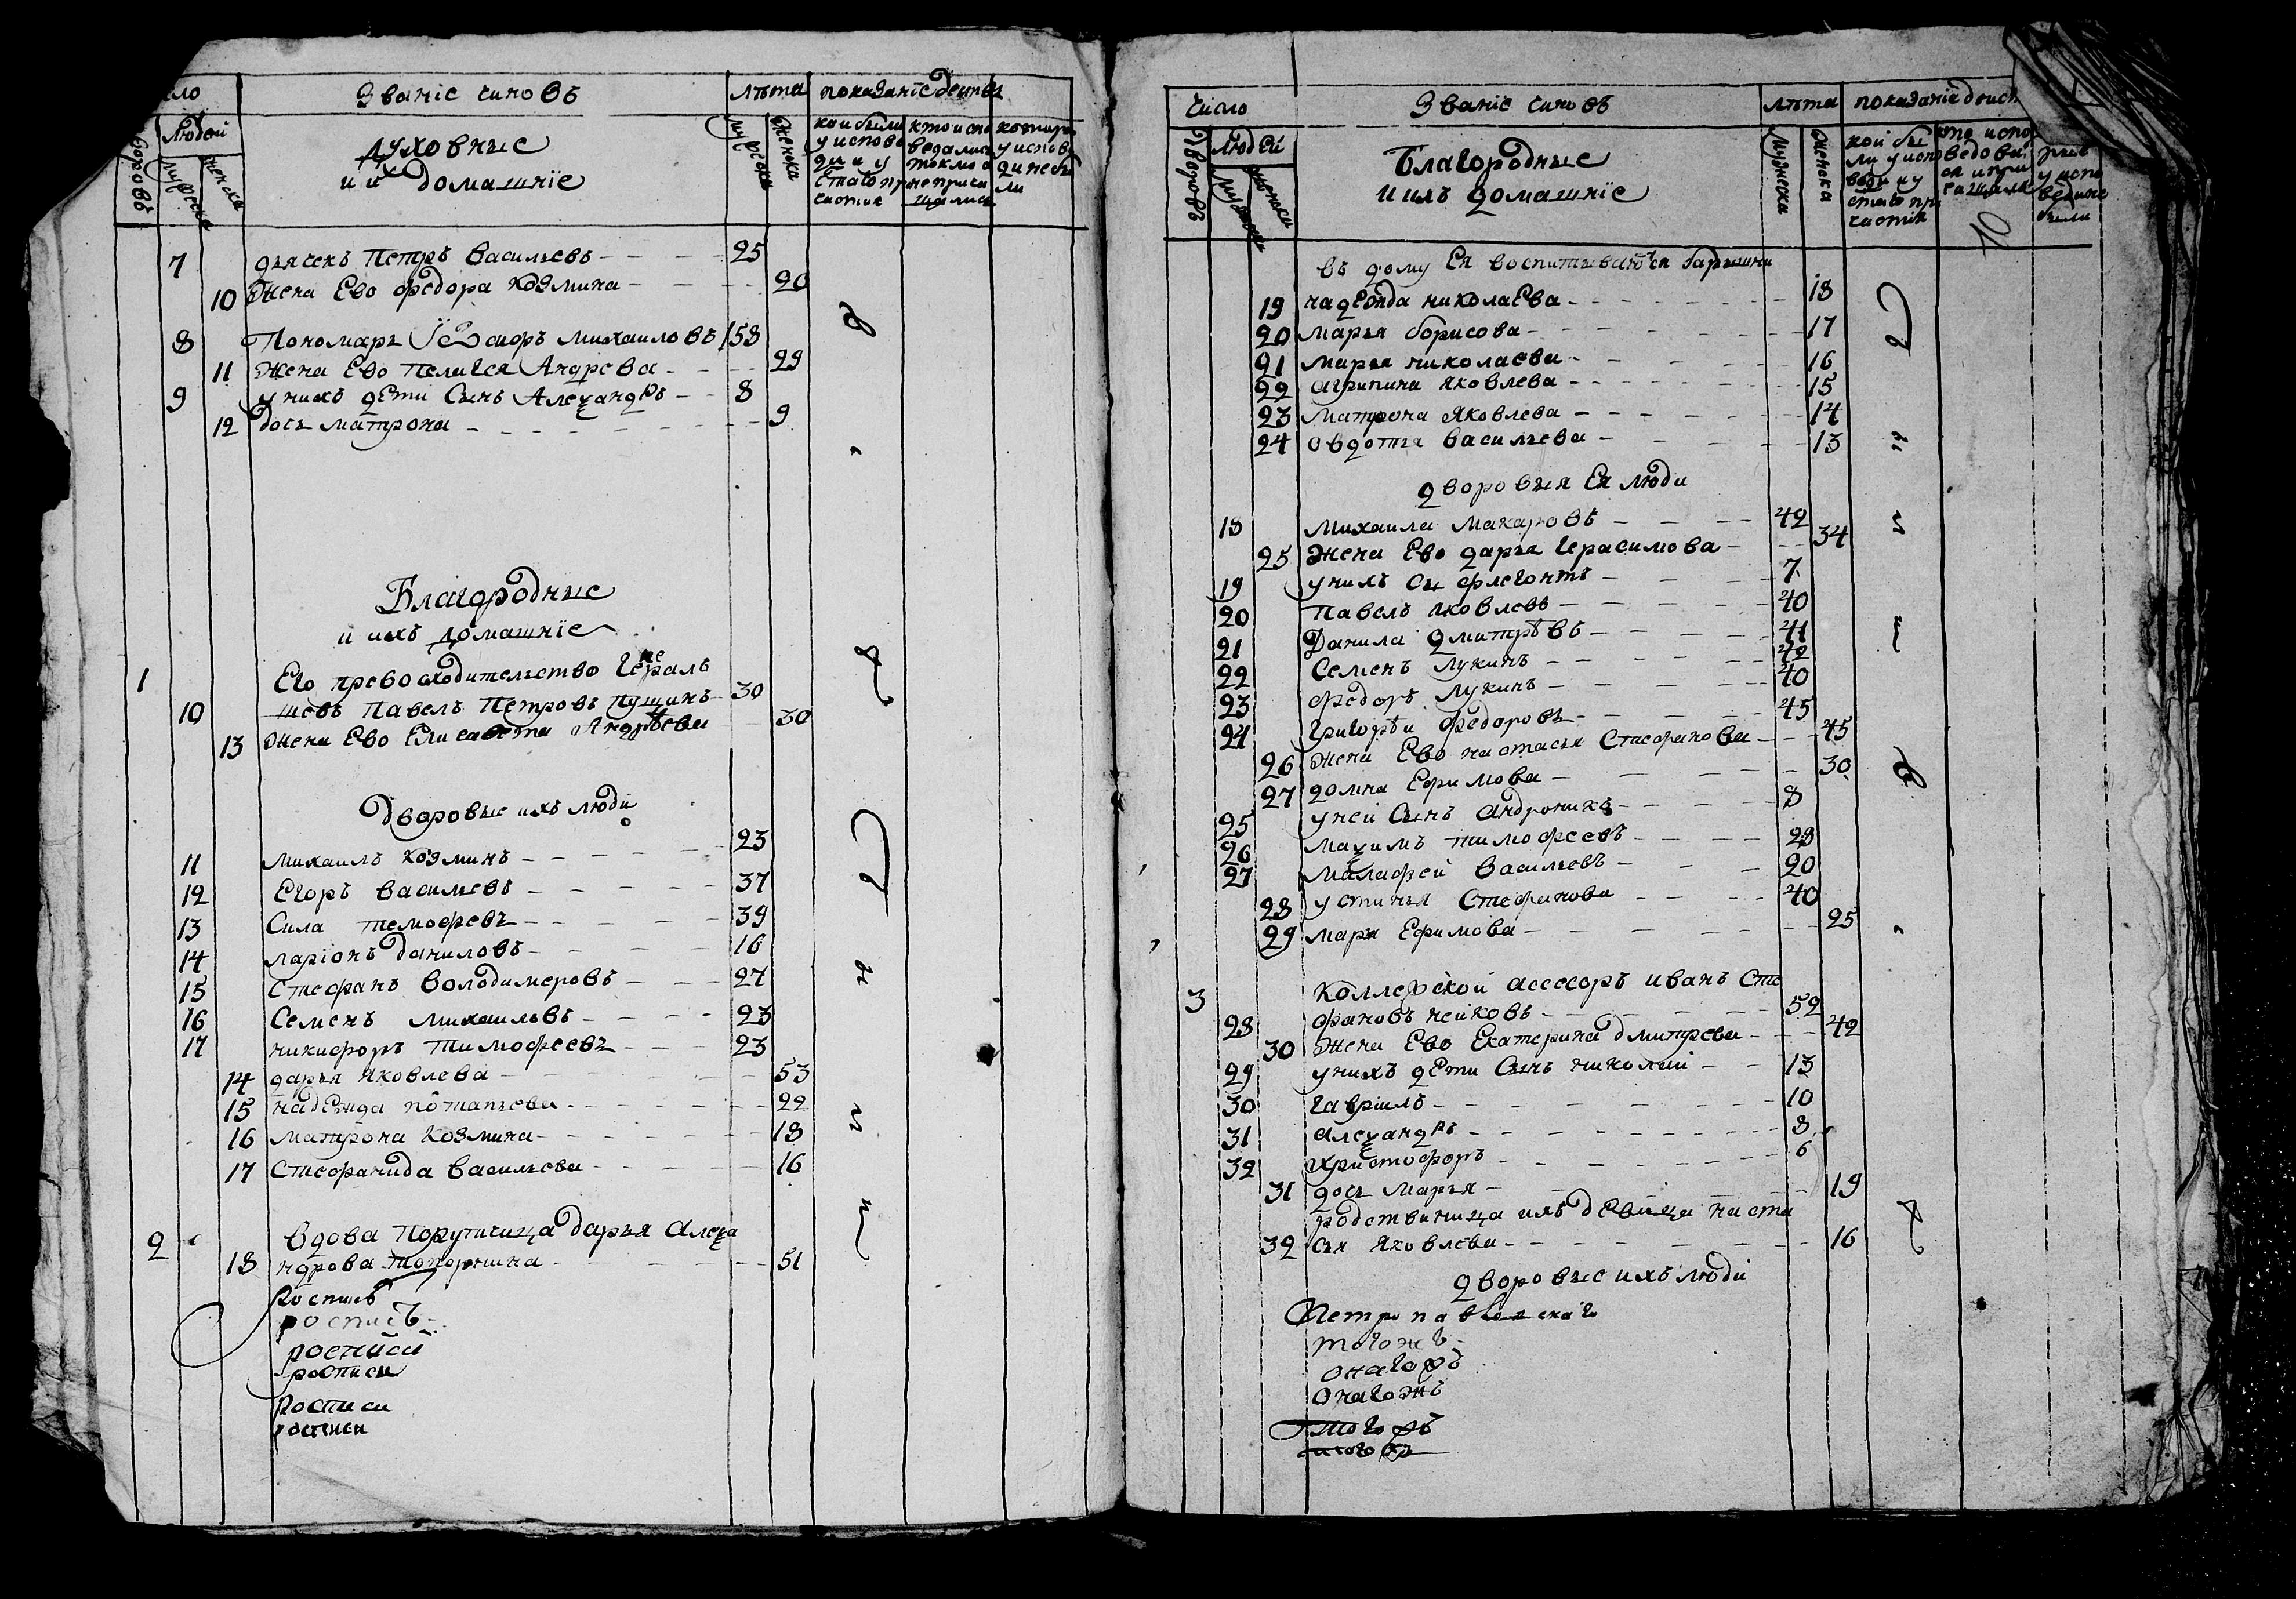 Званїе чиновъ лѣта показанїе действ
Людей
дворовъ мужеска женска
духовные
и их домашнїе
мужска женска
кои были
у испове
ди и у
стаго при
частия
кто испо
ведались
токмо а
не прича
щались
котор
у испове
ди не бы
ли
7 дьячекъ Петръ Васильевъ 25
10 Жена Ево федора Козмина 20
8 Пономарь Їсидоръ Михаиловъ 58
11 Жена Ево Пелагея Андрева 29
9 у нихъ дети Сынъ Алеѯандръ 8
12 Дочь матрона 9
Благородные
и ихъ домашнїе
1 Его превосходительство Генералъ
10 Павелъ Петровъ Пущинъ 30
13 Жена Ево Елисавета Андрѣева 30
Дворовые ихъ люди
11 Михаилъ Козминъ 23
12 Егоръ васильевъ 37
13 Сила темофевъ 39
14 ларїонъ даниловъ 16
15 Стефанъ Володимеровъ 27
16 Семенъ михаильвъ 23
17 никифоръ тимофеевъ 23
14 дарья яковлева 53
15 надежда потапьева 22
16 матрона Козмина 18
17 Стефанида васильева 16
2 вдова Порутчица дарья Алеѯа
18 ндрова топорнина 51
Роспись
роспись
росписи
росписи
Росписи
росписи
Число Званїе чиновъ лѣта показанїе деист
дворовъ Людей
мужеска женска
Благородные
и ихъ домашнїе
мужеска женска
кои бы
ли у испо
веди и у
стаго при
частия
10
въ дому Ея воспитываютъся барышни
19 надежда николаева 18
20 марья борисова 17
21 марья николаева 16
22 агрипина яковлева 15
23 матрона яковлева 14
24 овдотья васильева 13
дворовыя Ея люди
18 михаила макаровъ 42
25 жена Ево дарья Герасимова 34
19 у нихъ сы флегонтъ 7
20 Павелъ яковлевъ 40
21 Данила дмитрѣвъ 41
22 Семенъ лукинъ 42
23 федоръ лукинъ 40
24 Григорѣи федоровъ 45
26 жена Ево настасья Стефанова 45
27 домна Ефимова 30
25 у ней Сынъ андроникъ 8
26 маѯимъ тимофеевъ 28
27 малафей васильевъ 20
28 устинья Стефанова 40
29 марья Ефимова 25
3 Коллежской асессоръ иванъ Сте
28 фановъ нейковъ 52
30 Жена Ево Екатерина дмитрева 42
29 у нихъ дети Сынъ николай 13
30 гаврилъ 10
31 алеѯандръ 8
32 христофоръ 6
31 дочь марья 19
родственница ихъ девица наста
32 сья яковлева 16
дворовые ихъ люди
Петропавловскаго
тогожъ
онагожъ
Онагожъ
тогожъ